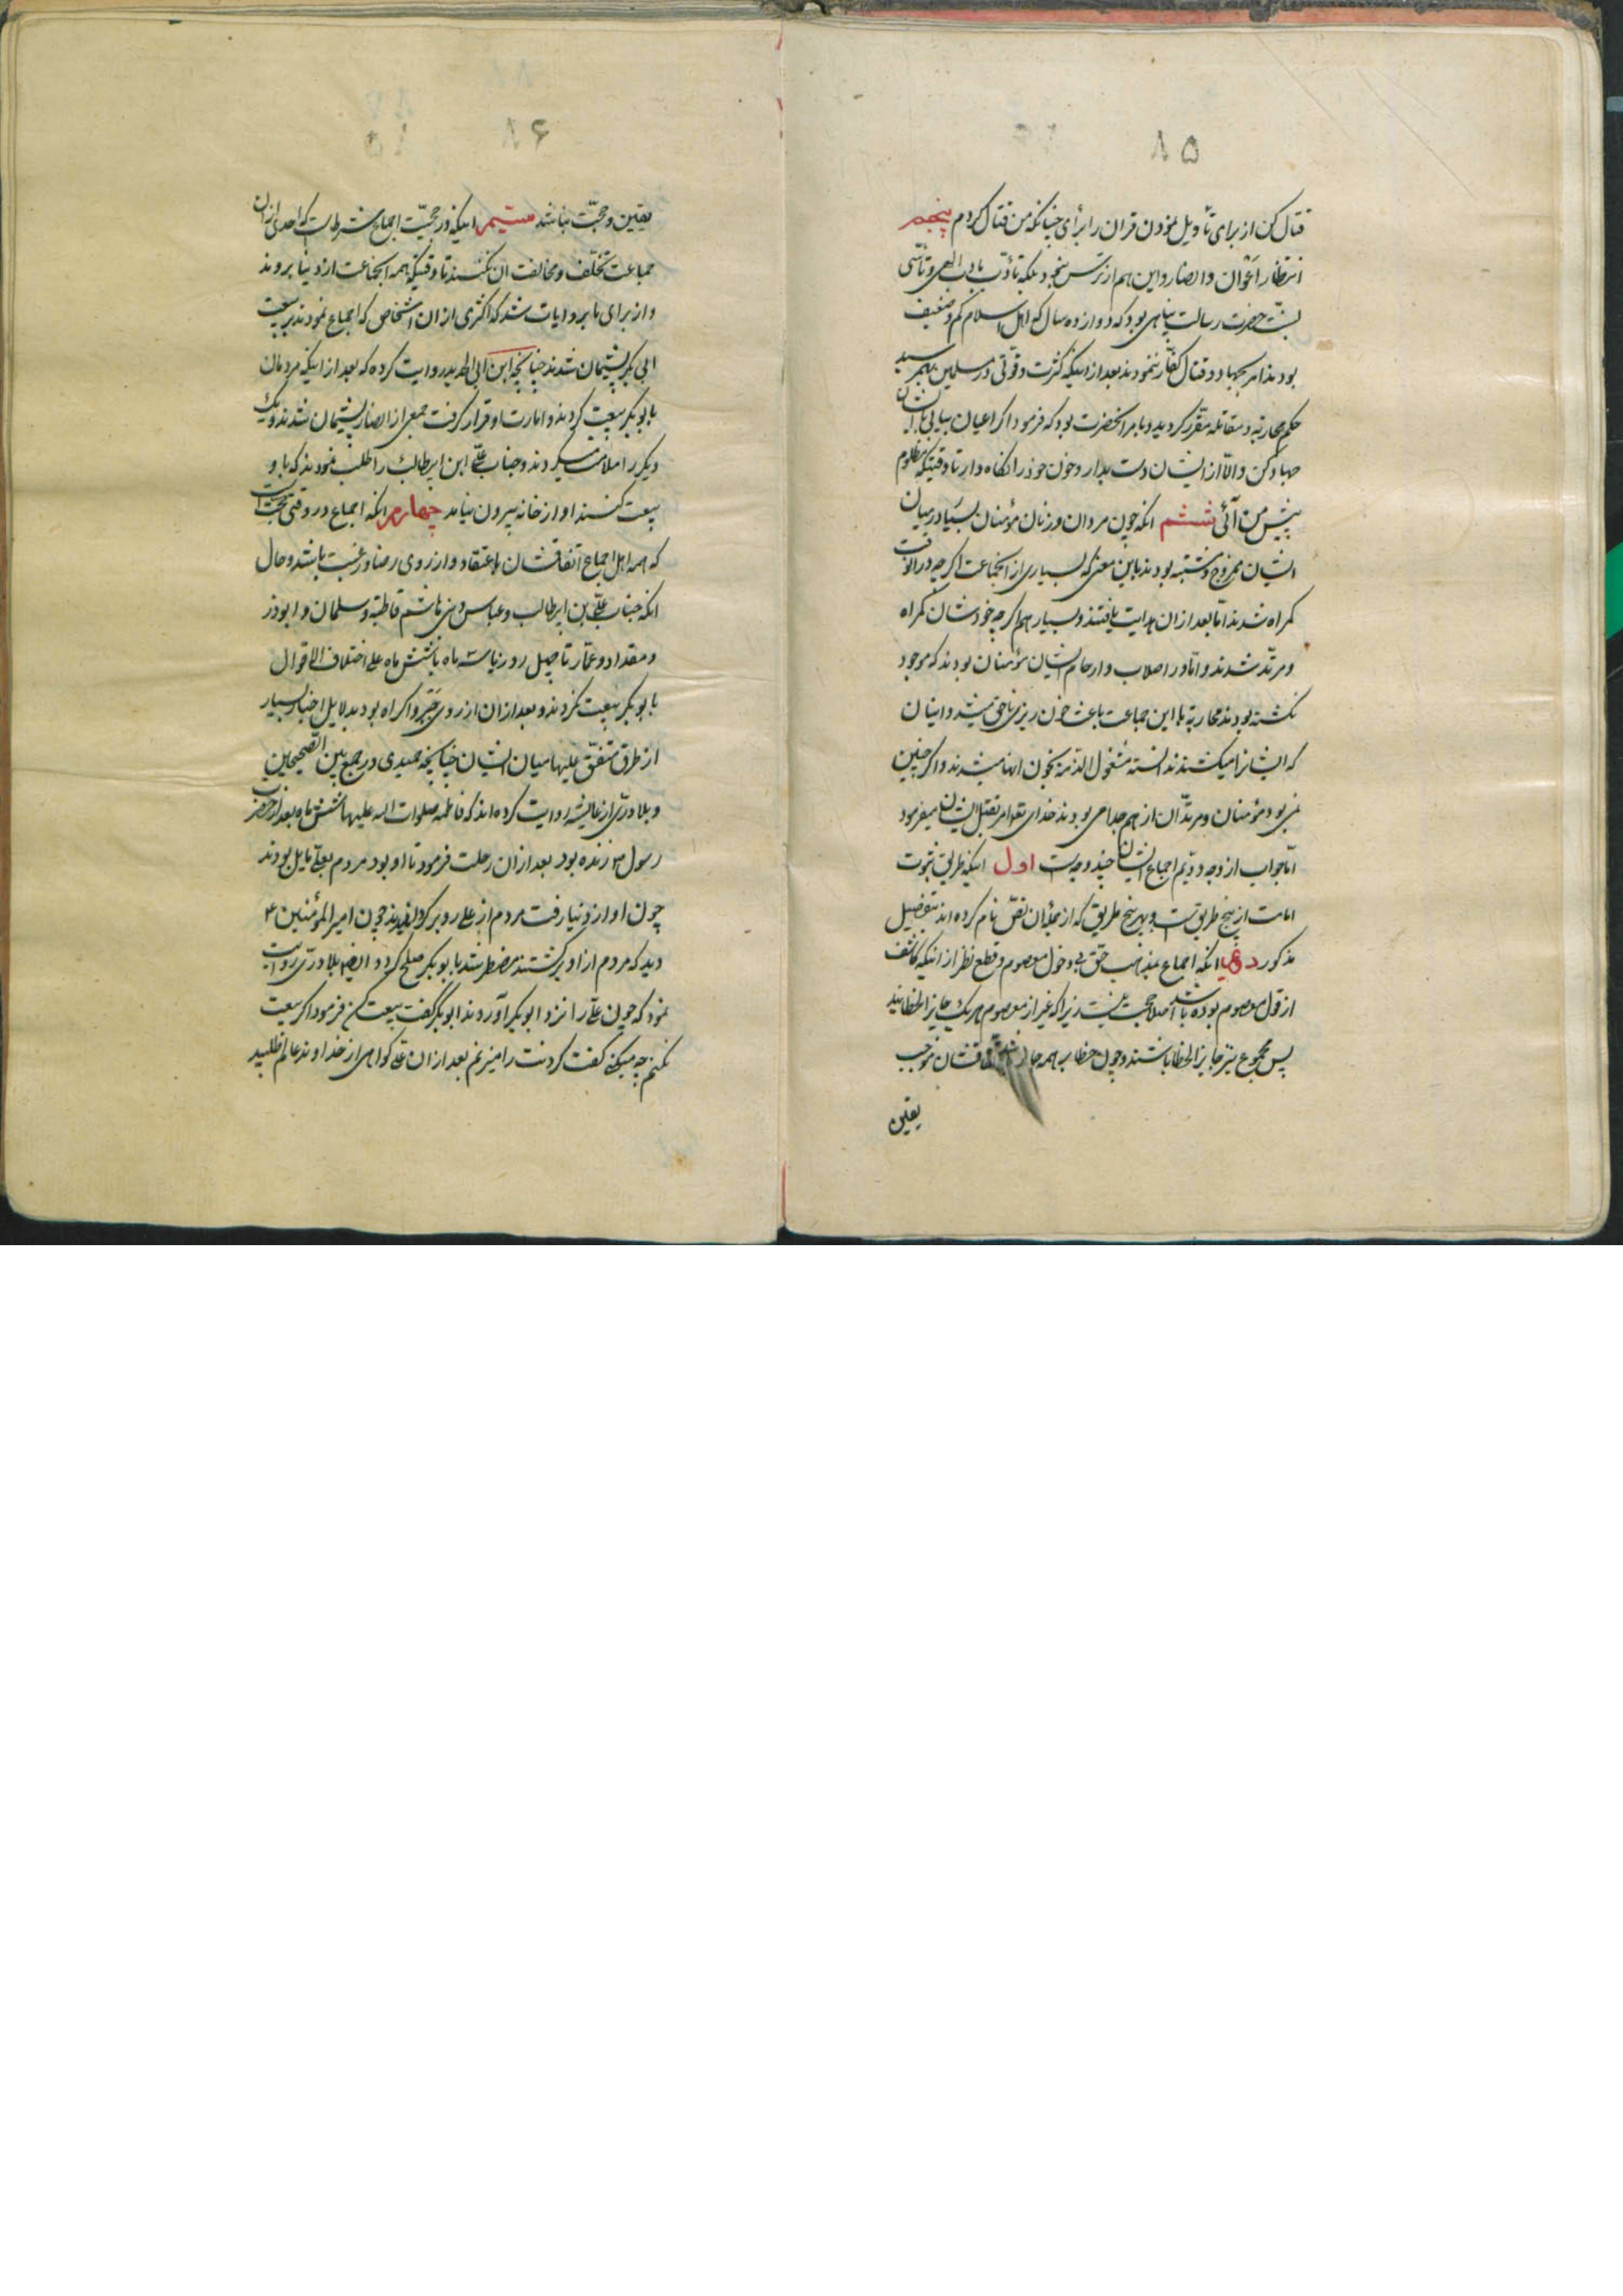 ۸۵
قتال کن از برای تأویل نمودن قران را برأی چنانکه من قتال کردم پنجم
انتظار اعوان و انصار و این هم از ترس نبود بلکه تأدّب بادب الهی و تأسّی
بسنّت حضرت رسالت پناهی بود که دوازده سال که اهل اسلام کم و ضعیف
بودند امر بجهاد و قتال کفّار ننمودند بعد از اینکه کثرت و قوّتی در مسلمین بهم رسید
حکم محاربه و مقاتله مقّرر گردید و بامر انحضرت بود که فرمود اگر اعیان بیابی باایشان
جهاد کن و الّا از ایشان دست بدار و خون خود را نگاه دار تا وقتیکه مظلوم
پیش من آئی ششم انکه چون مردان و زنان مؤمنان بسیار در میان
ایشان ممزوج و مشتبه بودند باین معنی که بسیاری از انجماعت اگر چه در انوقت
گمراه شدند امّا بعد از ان هدایت یافتند و بسیار هم اگر چه خودشان گمراه
و مرتّد شدند و امّا در اصلاب و ارحام ایشان مؤمنان بودند که موجود
نگشته بودند محاربه با این جماعت باعث خون ریزی ناحق میشد و اینان
که ایشانرا میکشتند ندانسته مشغول الذمّه بخون انها میشدند و اگر چنین
نمی بود مؤمنان و مرتدّان از هم جدا می بودند خدای تع امر بقتل ایشان میفرمود
امّا جواب از وجه دویّم اجماع ایشان چند وجه است اول اینکه طریق ثبوت
امامت از پنج طریق است و بهر پنج طریق که از بعد ان نصّ نام کرده اند بتفصیل
مذکور دویم انکه اجماع بمذهب حقّ بی دخول معصوم و قطع نظر از اینکه کاشف
از قول معصوم بوده باشد اصلا حجت نیست زیرا که غیر از معصوم هر یک جایز الخطایند
پس مجموع نیز جایز الخطا باشند و چون خطا بر همه جایز اتفاقشان موجب
یقین
۸۶
یقین و حجّت نباشد سیّم اینکه در حجیّت اجماع شرط است که احدی از ان
جماعت تخلّف و مخالفت ان نکنند تا وقتیکه همه انجماعت از دنیا بروند
و از برای ما بروایات شد که اکثری از ان اشخاص که اجماع نمودند بر بیعت
ابی بکر پشیمان شدند چنانچه ابن ابی الحدید روایت کرده که بعد از اینکه مردمان
بابوبکر بیعت کردند و امارت او قرار گرفت جمعی از انصار پشیمان شدند و یک
دیگر را ملامت میکردند و جناب علیّ ابن ابیطالب را طلب نمودند که با و
بیعت کنند او از خانه بیرون نیامد چهارم انکه اجماع در وقتی حجّت است
که همه اهل اجماع اتفاقشان با عتقاد و از روی رضا و رغبت باشد و حال
انکه جناب علیّ بن ابیطالب و عباس و بنی هاشم قاطبةً و سلمان و ابوذر
و مقداد و عمّار تا چهل روز یا سه ماه یا شش ماه علی اختلاف الاقوال
بابوبکر بیعت نکردند و بعد از ان از روی جبر و اکراه بود بدلایل اخبار بسیار
از طرق متفقّ علیها میان ایشان چنانچه حمیدی در جمع بین الصحیحین
و بلادری از عایشه روایت کرده اند که فاطمه صلوات الله علیها شش ماه بعد از حضرت
رسول ص زنده بود بعد از ان رحلت فرمود تا او بود مردم بعلیّ مایل بودند
چون او از دنیا رفت مردم از علی رو بر گردانیدند چون امیر المؤمنین ع
دید که مردم از او برگشتند مضطر شد با بوبکر صلح کرد و ایضا بلادری روایت
نمود که چون علیّ را نزد ابوبکر آوردند ابوبکر گفت بیعت کن فرمود اگر بیعت
نکنم چه میکنی گفت گردنت را میزنم بعد از ان علیّ گواهی از خداوند عالم طلبید